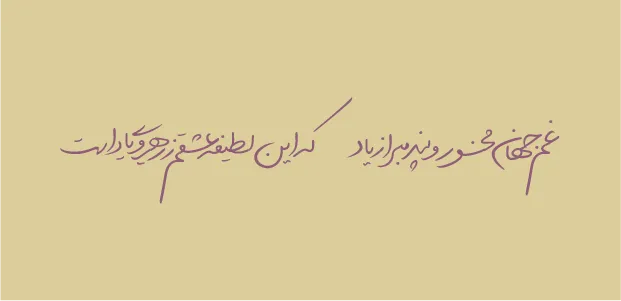 غم جهان مخور و پند مبر از یاد که این لطیفه عشقم ز رهروی یاد است